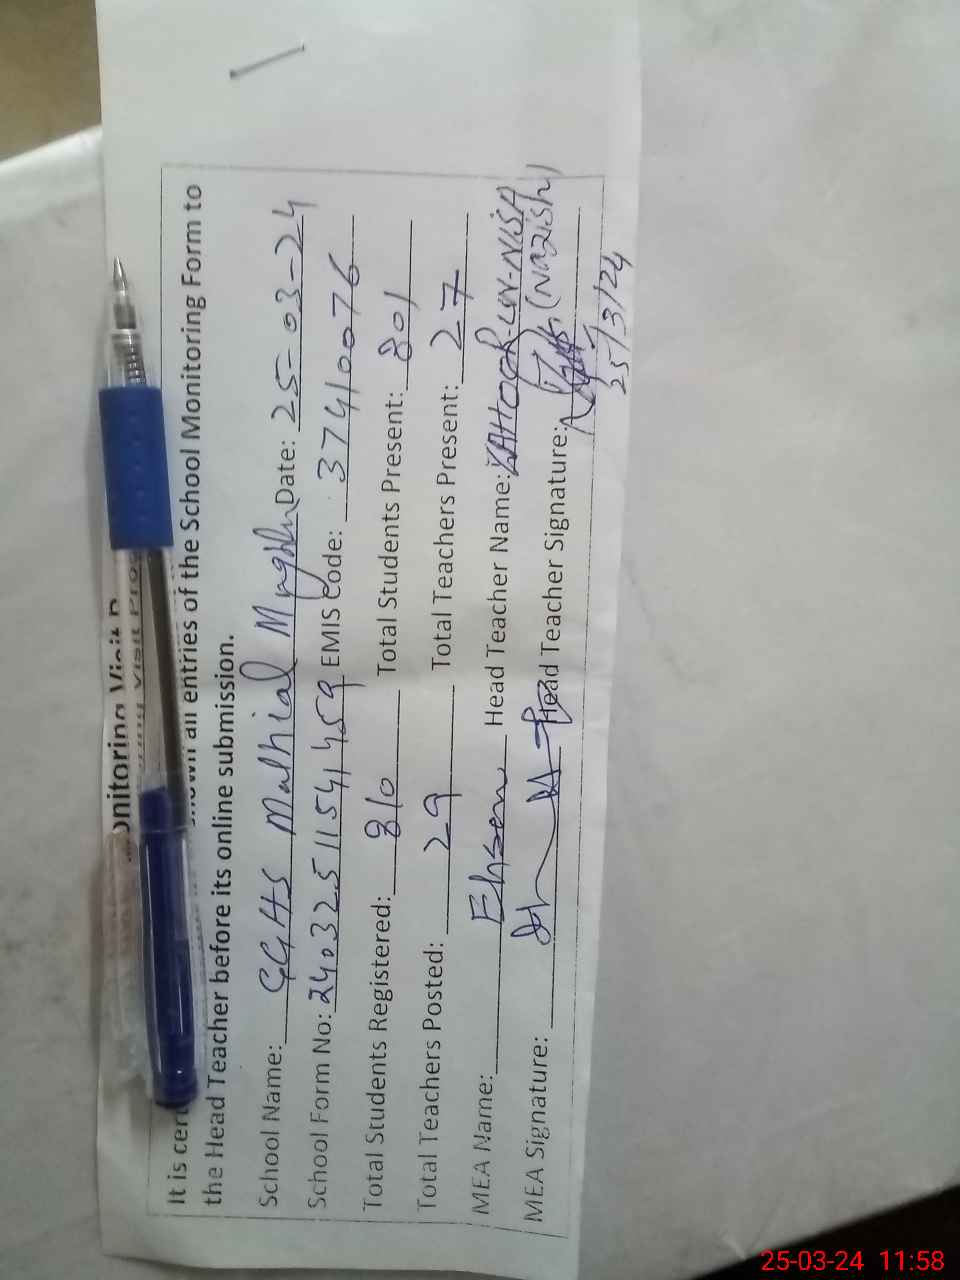 onitoring Visit
It is cer all entries of the School Monitoring Form to
the Head Teacher before its online submission.
School Name: GGHS Malhial Date: 25-03-24
School Form No: 24032511541459 EMIS Code: 37410076
Total Students Registered: 810 Total Students Present: 801
Total Teachers Posted: 29 Total Teachers Present: 27
MEA Name: Ehsan Head Teacher Name: ZAHOOR-UN-NISA
MEA Signature: Head Teacher Signature: (Nazish)
25/3/24
25-03-24 11:58